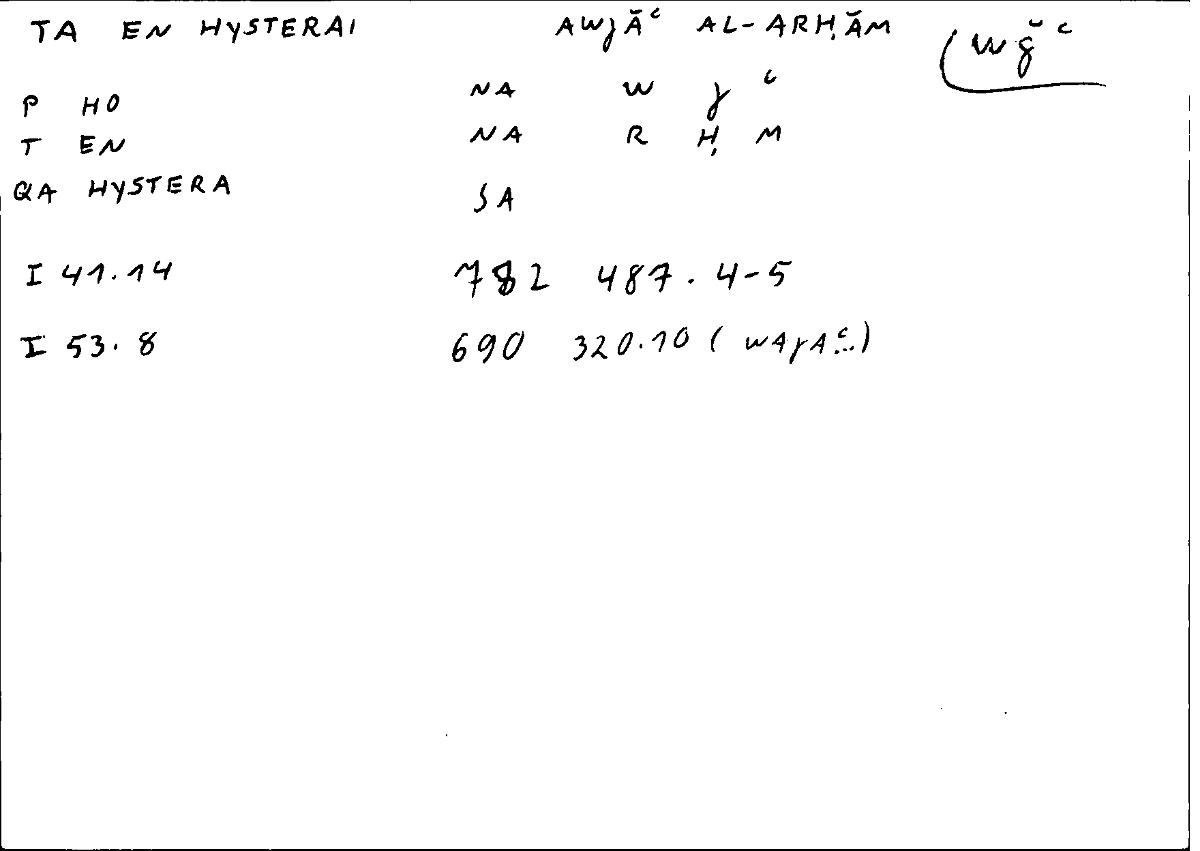 TA EN HYSTERAI AWJĀʿ AL-ARḤĀM (wǧʿ
P HO NA W J ʿ
T EN NA R Ḥ M
QA HYSTERA SA
I 41.14 782 487.4-5
I 53.8 690 320.10 (WAJAʿ...)